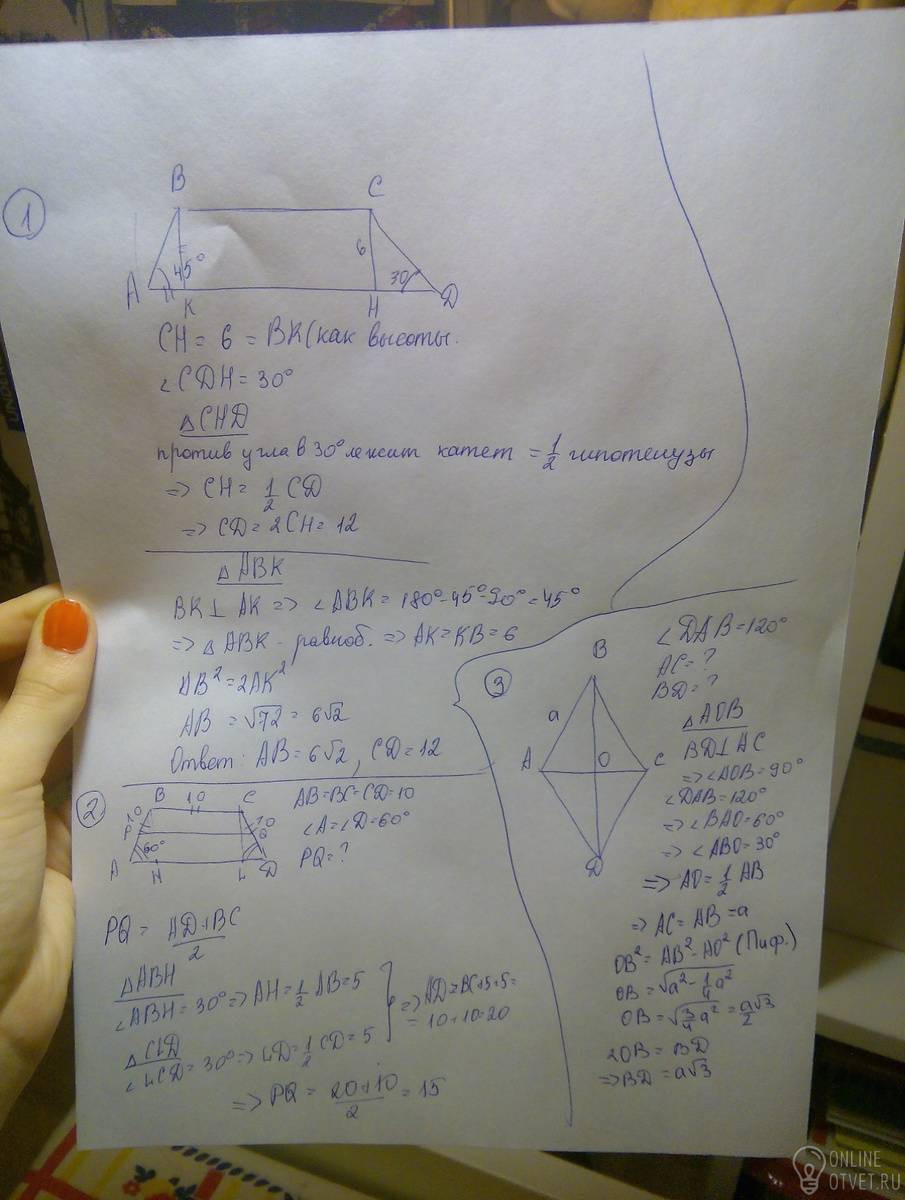 1
B C
45° 6 30
A K H D
CH = 6 = BK (как высоты.
∠CDH = 30°
△CHD
против угла в 30° лежит катет = 1/2 гипотенузы
=> CH = 1/2 CD
=> CD = 2CH = 12
△ABK
BK ⊥ AK => ∠ABK = 180°-45°-90° = 45°
=> △ABK - равноб. => AK = KB = 6
AB² = 2AK²
AB = √72 = 6√2
Ответ: AB = 6√2, CD = 12
2
B 10 C
10 10
P Q
60°
A H L D
AB=BC=CD=10
∠A=∠D=60°
PQ = ?
PQ = AD+BC/2
△ABH
∠ABH = 30° => AH = 1/2 AB = 5
△CLD
∠LCD = 30° => LD = 1/2 CD = 5
=> AD = BC+5+5 =
= 10+10=20
=> PQ = 20+10/2 = 15
3
B
a
A O C
D
∠DAB=120°
AC = ?
BD = ?
△AOB
BD ⊥ AC
=> ∠AOB = 90°
∠DAB=120°
=> ∠BAO = 60°
=> ∠ABO = 30°
=> AO = 1/2 AB
=> AC = AB = a
OB² = AB² - AO² (Пиф.)
OB = √a² - 1/4 a²
OB = √3/4 a² = a√3/2
2OB = BD
=> BD = a√3
ONLINE
OTVET.RU